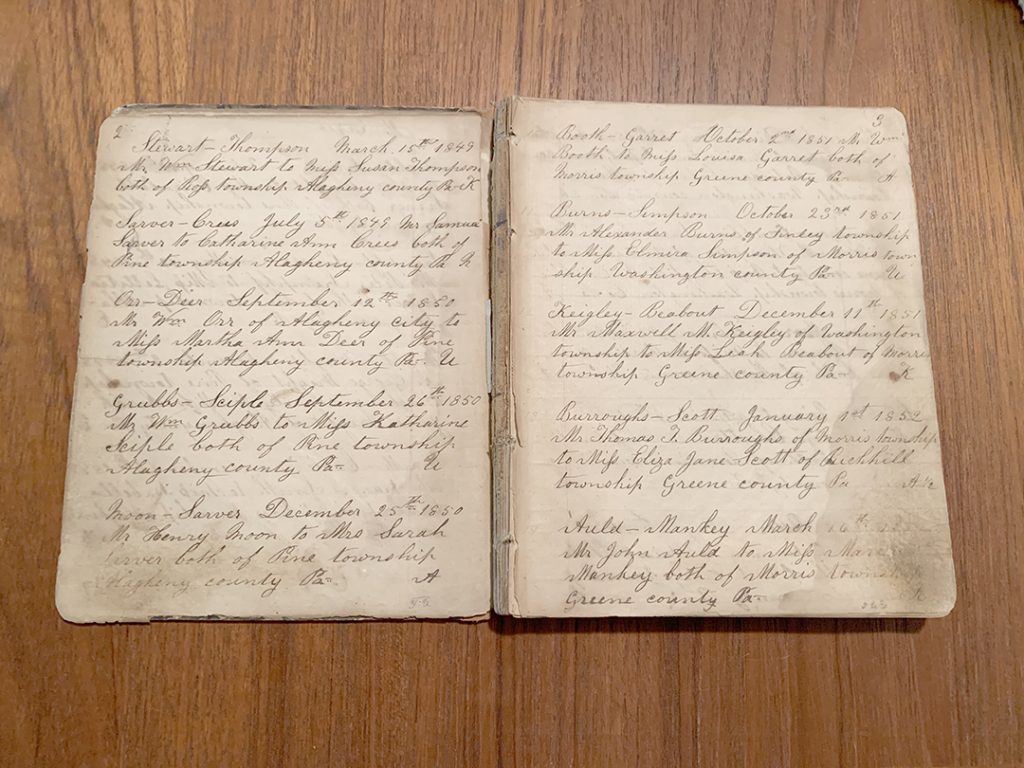 2
Stewart-Thompson March 15th 1849
Mr Wm Stewart to Miss Susan Thompson
both of Ross township Alagheny county Pa- K
Sarver-Crees July 5th 1849 Mr Samuel
Sarver to Catharine Ann Crees both of
Pine township Alagheny county Pa K
Orr-Deer September 12th 1850
Mr Wm Orr of Alagheny City to
Miss Martha Ann Deer of Pine
township Alagheny county Pa- U
Grubbs-Sciple September 26th 1850
Mr Wm Grubbs to Miss Katharine
Sciple both of Pine township
Alagheny county Pa- U
Moon-Sarver December 25th 1850
Mr Henry Moon to Mrs Sarah
Sarver both of Pine township
Alagheny county Pa- A
3
Booth-Garret October 2nd 1851 Mr Wm
Booth to Miss Louisa Garret both of
Morris township Greene county Pa- A
Burns-Simpson October 23rd 1851
Mr Alexander Burns of Finley township
to Miss Elmira Simpson of Morris town
ship Washington county Pa- U
Keigley-Beabout December 11th 1851
Mr Maxwell M. Keigley of Washington
township to Miss Leah Beabout of Morris
township Greene county Pa- K
Burroughs-Scott January 1st 1852
Mr Thomas T. Burroughs of Morris township
to Miss Eliza Jane Scott of Richhill
township Greene county Pa
Auld-Mankey March
Mr John Auld to Miss
Mankey both of Morris township
Greene county Pa-